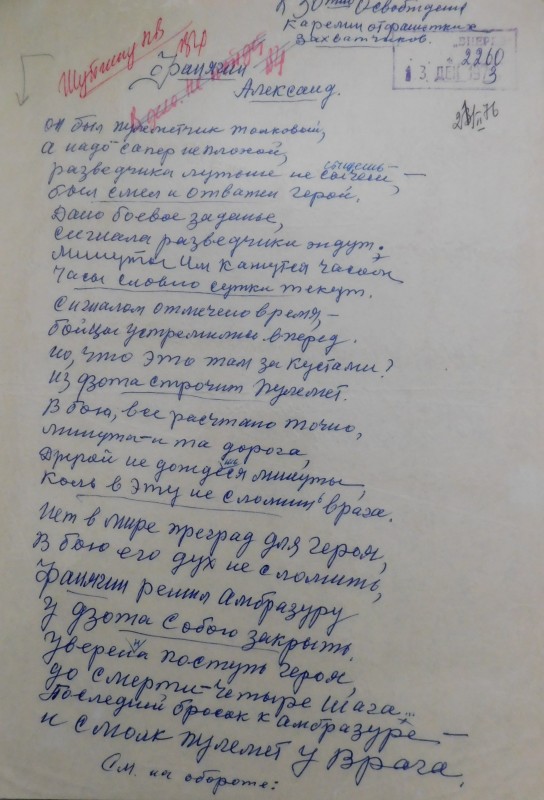 К 30-тию Освобождения
Карелии от фашистких
Захватчиков.
2260
3 ДЕК 1973
Фанягин
Александ.
он был пулеметчик толковый,
а надо сапер неплохой,
разведчика лутьше не сыщешь –
был смел и отважен герой.
Дано боевое заданье,
сигнала разведчики ждут.
минуты им кажутся часом
Часы словно сутки текут.
сигналом отмечено время, –
бойцы устремились вперед.
но, что это там за кустами?
из дзота строчит пулемет.
В бою, все расчитано точно,
минута – и та дорога,
Другой не дождешся минуты,
Коль в эту не сломишь врага.
Нет в мире преград для героя,
В бою его дух не сломить,
Фанягин решил Амбразуру
у дзота собою закрыть.
уверенна поступь героя,
до смерти – четыре шага...
Последний бросок к амбразуре –
и смолк пулемет у Врага.
См. на обороте: